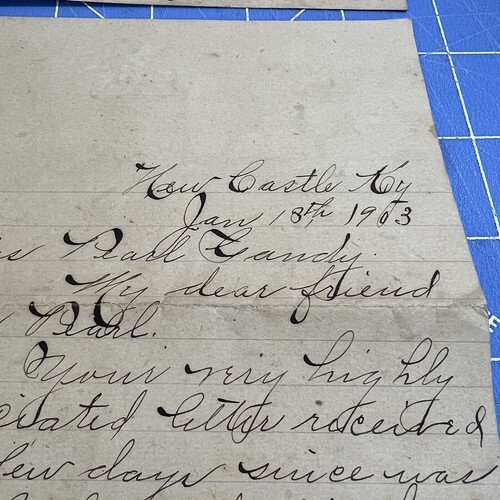 New Castle Ky
Jan 18th 1903
s Pearl Gandy.
My dear friend
Pearl.
Your very highly
ciated letter received
few days since was